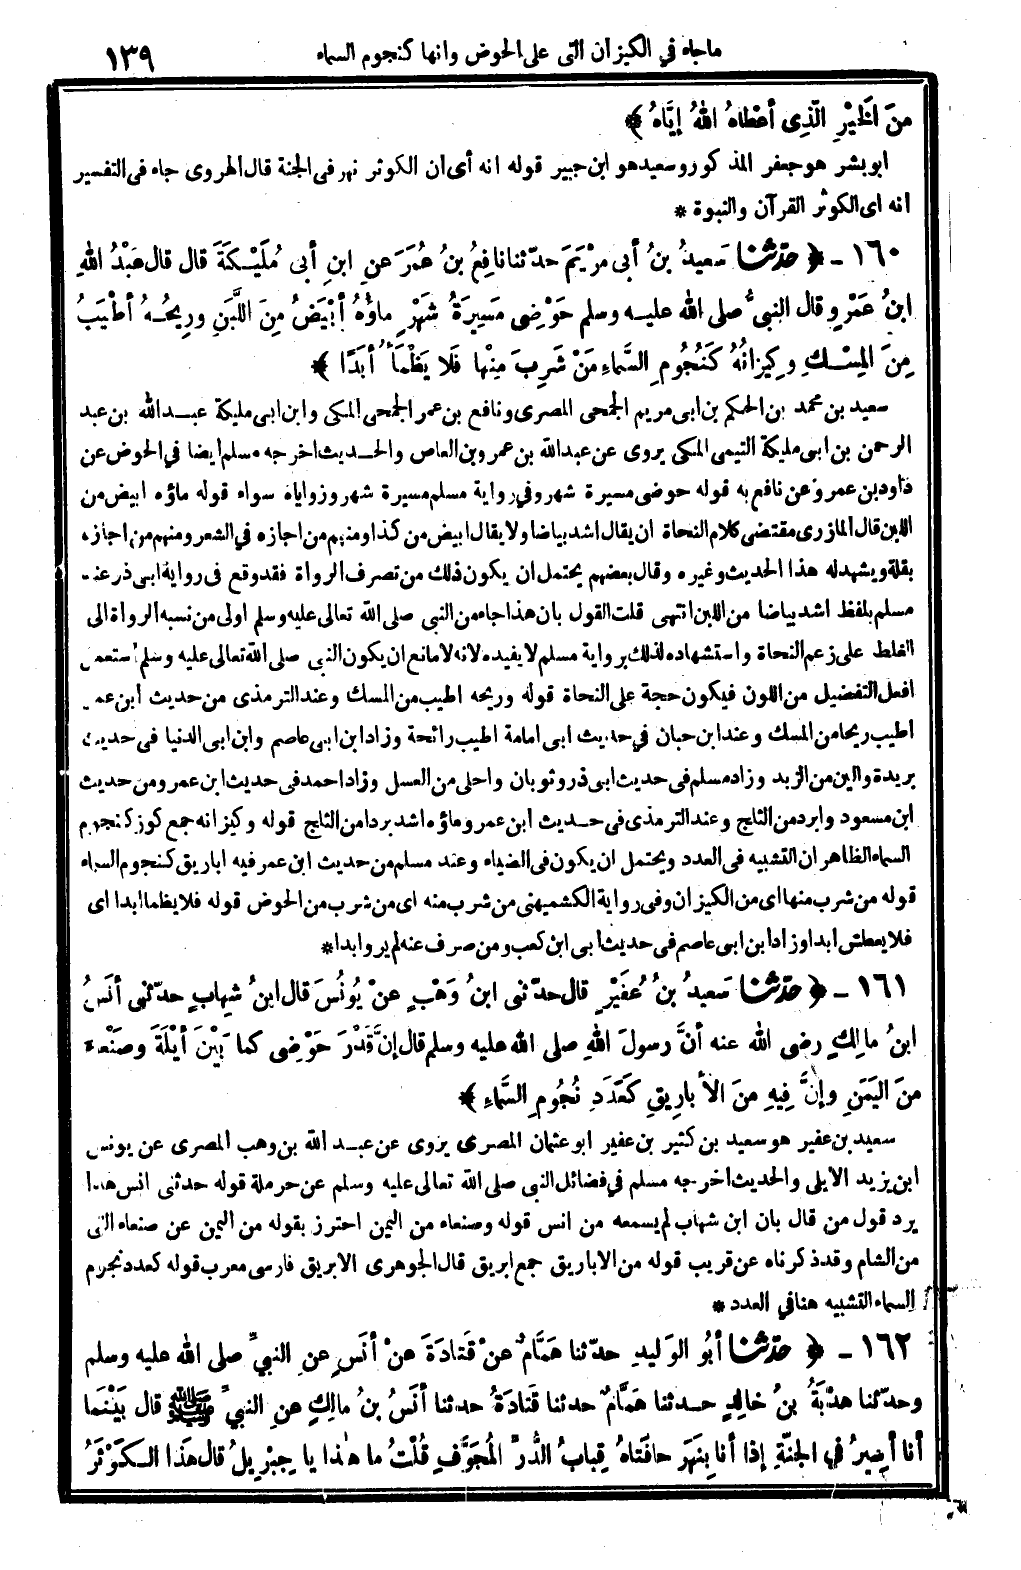 ماجاء في الكيزان التى على الحوض وانها كنجوم السماء ١٣٩
مِنَ الخَيْرِ الَّذِى أعْطاهُ اللهُ إيَّاهُ ﴾
ابو بشر هو جعفر المذكور وسعيد هو ابن جبير قوله انه أى ان الكوثر نهر فى الجنة قال الهروى جاء فى التفسير
انه اى الكوثر القرآن والنبوة *
١٦٠ - ﴿ حدّثنا سَعِيدُ بنُ أبى مرْيَمَ حدّثنا نافِعُ بنُ عُمَرَ عنِ ابنِ أبى مُلَيْكَةَ قال قال عَبْدُ اللهِ
ابنُ عَمْرٍو قال النبىُّ صلى الله عليه وسلم حَوْضِى مَسِيرَةُ شَهْرٍ ماؤُهُ أبْيَضُ مِنَ اللَّبَنِ ورِيحُهُ أطْيَبُ
مِنَ المِسْكِ وكِيزانُهُ كَنُجُومِ السَّماءِ مَنْ شَرِبَ مِنْها فَلا يَظْمَأُ أبَدًا ﴾
سعيد بن محمد بن الحكم بن ابى مريم الجمحى المصرى ونافع بن عمر الجمحى المكى وابن ابى مليكة عبد الله بن عبد
الرحمن بن ابى مليكة التيمى المكى يروى عن عبدالله بن عمرو بن العاص والحديث اخرجه مسلم ايضا في الحوض عن
داود بن عمرو عن نافع به قوله حوضى مسيرة شهر وفي رواية مسلم مسيرة شهر وزواياه سواء قوله ماؤه ابيض من
اللبن قال المازرى مقتضى كلام النحاة ان يقال اشد بياضا ولا يقال ابيض من كذا ومنهم من اجازه في الشعر ومنهم من اجازه
بقلة ويشهد له هذا الحديث وغيره وقال بعضهم يحتمل ان يكون ذلك من تصرف الرواة فقد وقع فى رواية ابى ذر عند
مسلم بلفظ اشد بياضا من اللبن انتهى قلت القول بان هذا جاء من النبى صلى الله تعالى عليه وسلم اولى من نسبه الرواة الى
الغلط على زعم النحاة واستشهاده لذلك برواية مسلم لا يفيده لانه لا مانع ان يكون النبى صلى الله تعالى عليه وسلم استعمل
افعل التفضيل من اللون فيكون حجة على النحاة قوله وريحه اطيب من المسك وعند الترمذى من حديث ابن عمر
اطيب ريحا من المسك وعند ابن حبان في حديث ابى امامة اطيب رائحة وزاد ابن ابى عاصم وابن ابى الدنيا فى حديث
بريدة والين من الزبد وزاد مسلم فى حديث ابى ذر وثوبان واحلى من العسل وزاد احمد فى حديث ابن عمر ومن حديث
ابن مسعود وابرد من الثلج وعند الترمذى فى حديث ابن عمر وماؤه اشد بردا من الثلج قوله وكيزانه جمع كوز كنجوم
السماء الظاهر ان التشبيه فى العدد ويحتمل ان يكون فى الضياء وعند مسلم من حديث ابن عمر فيه اباريق كنجوم السماء
قوله من شرب منها اى من الكيزان وفى رواية الكشميهنى من شرب منه اى من شرب من الحوض قوله فلا يظما ابدا اى
فلا يعطش ابدا وزاد ابن ابى عاصم فى حديث ابى ابن كعب ومن صرف عنه لم يرو ابدا*
١٦١ - ﴿ حدّثنا سَعِيدُ بنُ عُفَيْرٍ قال حدّثنى ابنُ وَهْبٍ عنْ يُونُسَ قال ابنُ شِهابٍ حدّثنى أنَسُ
ابنُ مالِكٍ رضى الله عنه أنَّ رسولَ اللهِ صلى الله عليه وسلم قال إنَّ قَدْرَ حَوْضِى كما بَيْنَ أيْلَةَ وصَنْعاءَ
مِنَ اليَمَنِ وإنَّ فِيهِ مِنَ الأبارِيقِ كَعَدَدِ نُجُومِ السَّماءِ ﴾
سعيد بن عفير هو سعيد بن كثير بن عفير ابو عثمان المصرى يروى عن عبد الله بن وهب المصرى عن يونس
ابن يزيد الايلى والحديث اخرجه مسلم في فضائل النبى صلى الله تعالى عليه وسلم عن حرملة قوله حدثنى انس هذا
يرد قول من قال بان ابن شهاب لم يسمعه من انس قوله وصنعاء من اليمن احترز بقوله من اليمن عن صنعاء التى
من الشام وقد ذكرناه عن قريب قوله من الاباريق جمع ابريق قال الجوهرى الابريق فارسى معرب قوله كعدد نجوم
السماء التشبيه هنا في العدد *
١٦٢ - ﴿ حدّثنا أبُو الوَلِيدِ حدّثنا هَمَّامٌ عنْ قَتادَةَ عنْ أنَسٍ عنِ النبىِّ صلى الله عليه وسلم
وحدّثنا هُدْبَةُ بنُ خالِدٍ حدثنا هَمَّامٌ حدثنا قَتادَةُ حدثنا أنَسُ بنُ مالِكٍ عنِ النبىِّ ﷺ قال بَيْنَما
أنا أسِيرُ في الجَنَّةِ إذا أنا بِنَهَرٍ حافَتاهُ قِبابُ الدُّرِّ المُجَوَّفِ قُلْتُ ما هٰذا يا جِبْرِيلُ قال هَذا الكَوْثَرُ